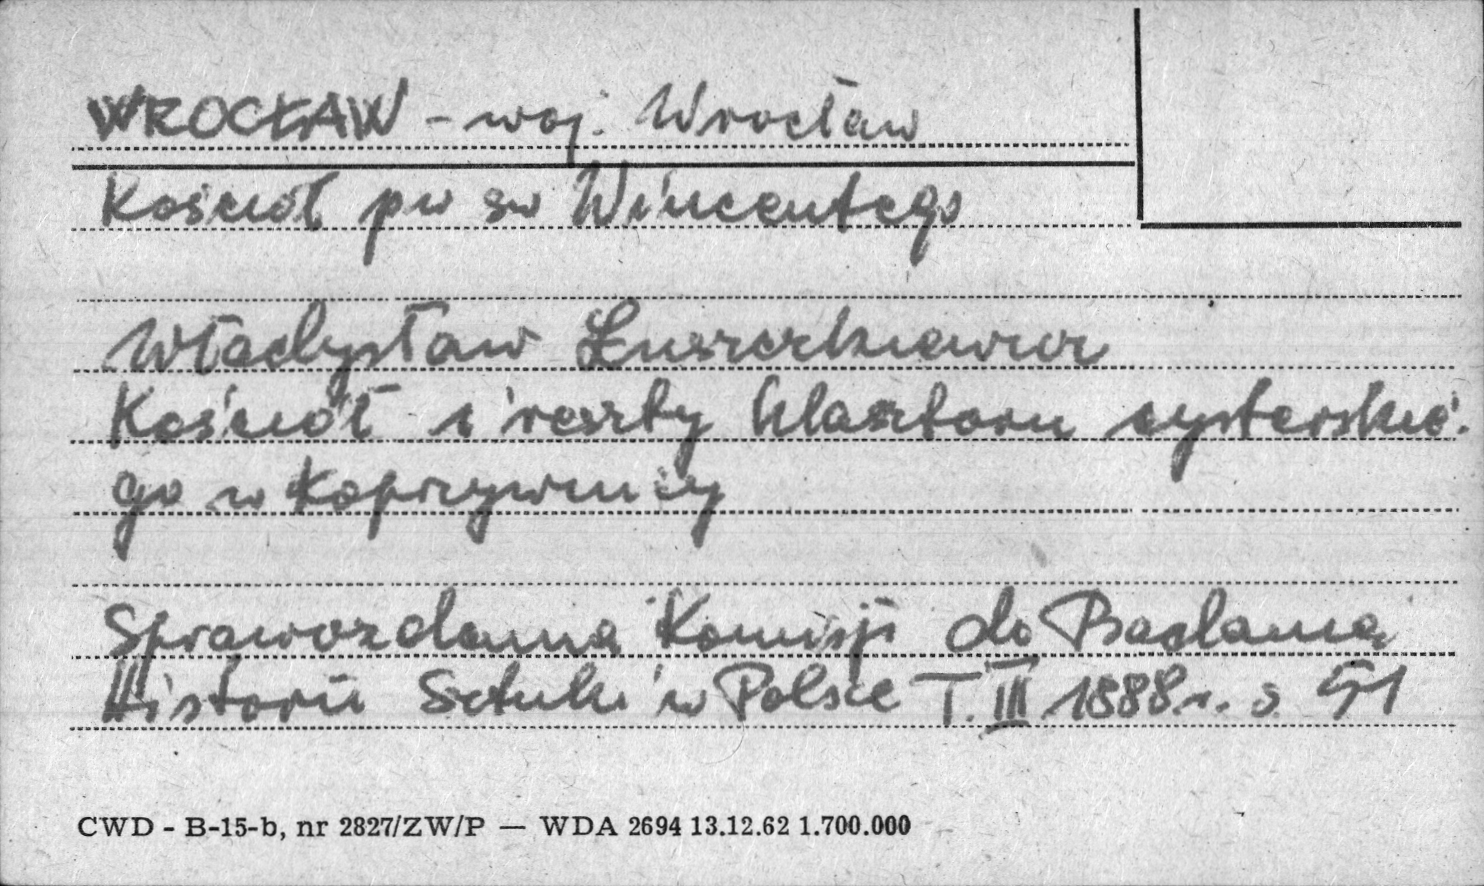 WROCŁAW - woj. Wrocław
Kościół pw św Wincentego
Władysław Łuszczkiewicz
Kościół i reszty klasztoru cysterskie-
go w Koprzywnicy
Sprawozdania Komisji do Badania
Historii Sztuki w Polsce T. III 1888 r. s. 51
CWD - B-15-b, nr 2827/ZW/P — WDA 2694 13.12.62 1.700.000